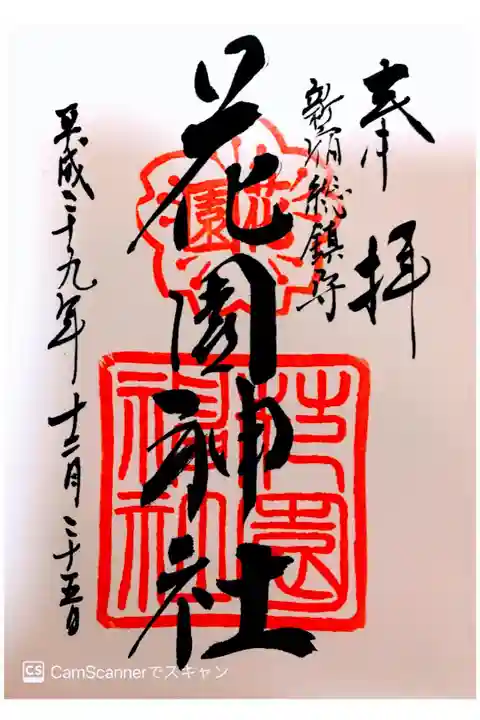 奉拝
新宿総鎮守
花園神社
花園
花園
神社
平成二十九年 十二月 二十五日
CS CamScannerでスキャン